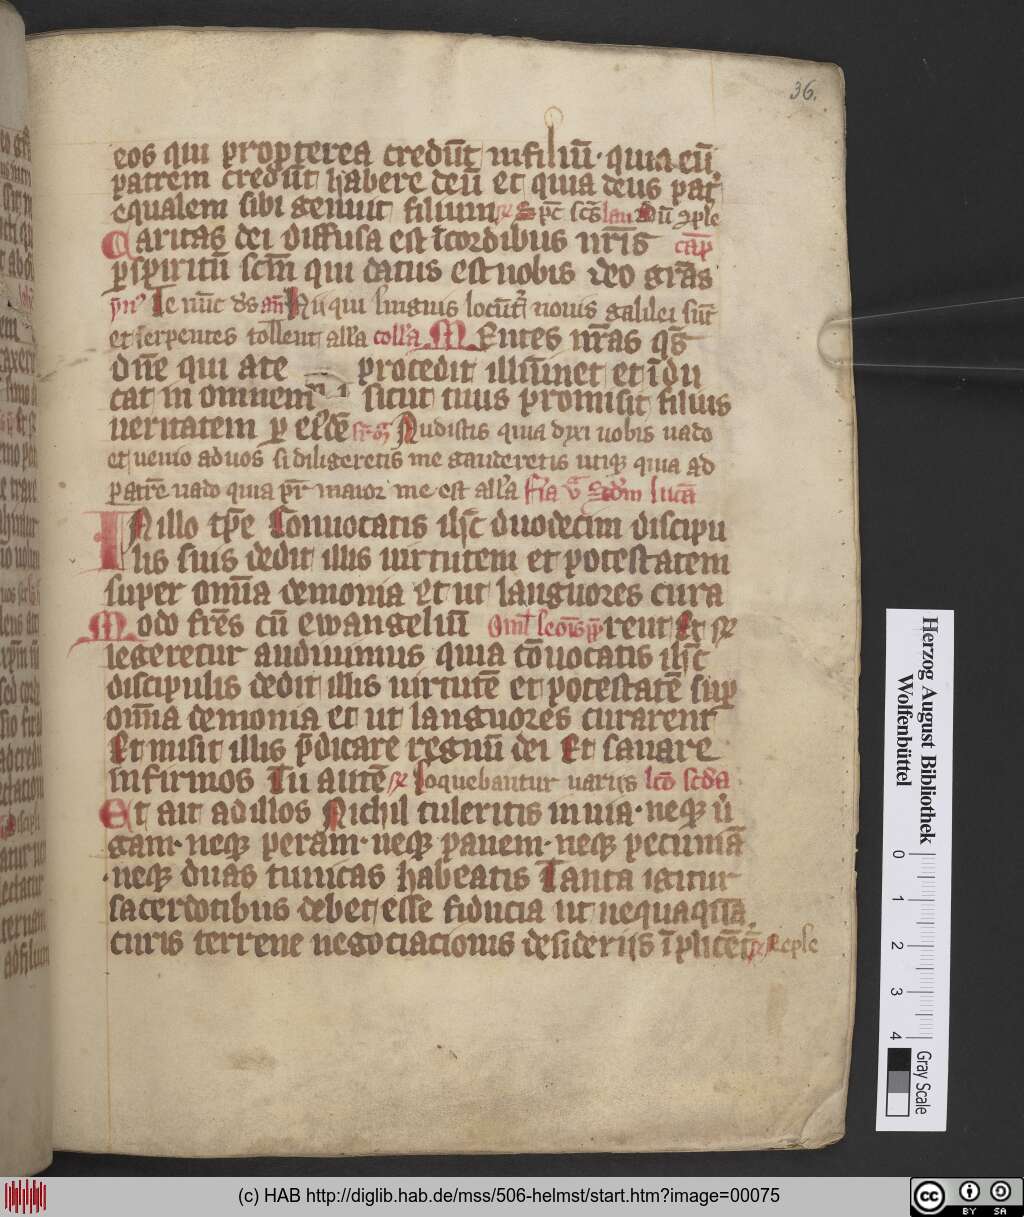 36.
eos qui propterea credūt in filiū · quia eū
patrem credūt habere deū et quia deus pat̄
equalem sibi genuit filium ꝶ Spc̄ sc̄s lau Dū ↄple
Caritas dei diffusa est ī cordibus nr̄is cap̄
ꝑ spiritū sc̄m qui datus est nobis deo gr̄as
Te nūc ds an̄ Hii qui linguis locūt̄ nouis galilei sūt
et serpentes tollent all'a coll'a Mentes nr̄as qs̄
dn̄e qui a te procedit illūinet et īdu
cat in omnem sicut tuus promisit filius
ueritatem ꝑ Audistis quia dixi uobis uado
et uenio ad uos si diligeretis me gauderetis utiqꝫ quia ad
patrē uado quia pr̄ maior me est all'a fr̄ia v̄ Scd'm lucā
In illo tꝑe Conuocatis ihc̄ duodecim discipu
lis suis dedit illis uirtutem et potestatem
super om̄ia demonia et ut languores cura
Modo fr̄es cū ewangeliū Om̄l leoīs pp̄ rent Et ꝶ
legeretur audiuimus quia cōuocatis ihc̄
discipulis dedit illis uirtutē et potestatē suꝑ
om̄ia demonia et ut languores curarent
Et misit illis p̄dicare regnū dei Et sanare
infirmos Tu autē ꝶ Loquebantur uariis lc̄o scd'a
Et ait ad illos Nichil tuleritis in uia · neqꝫ uˈ
gam · neqꝫ peram · neqꝫ panem · neqꝫ pecuniā
· neqꝫ duas tunicas habeatis Tanta igitur
sacerdotibus debet esse fiducia ut nequaq̄
curis terrene negociacionis desideriis īplicēt̄ ꝶ Reple
Herzog August Bibliothek
Wolfenbüttel
0 1 2 3 4
Gray Scale
(c) HAB http://diglib.hab.de/mss/506-helmst/start.htm?image=00075
cc BY SA